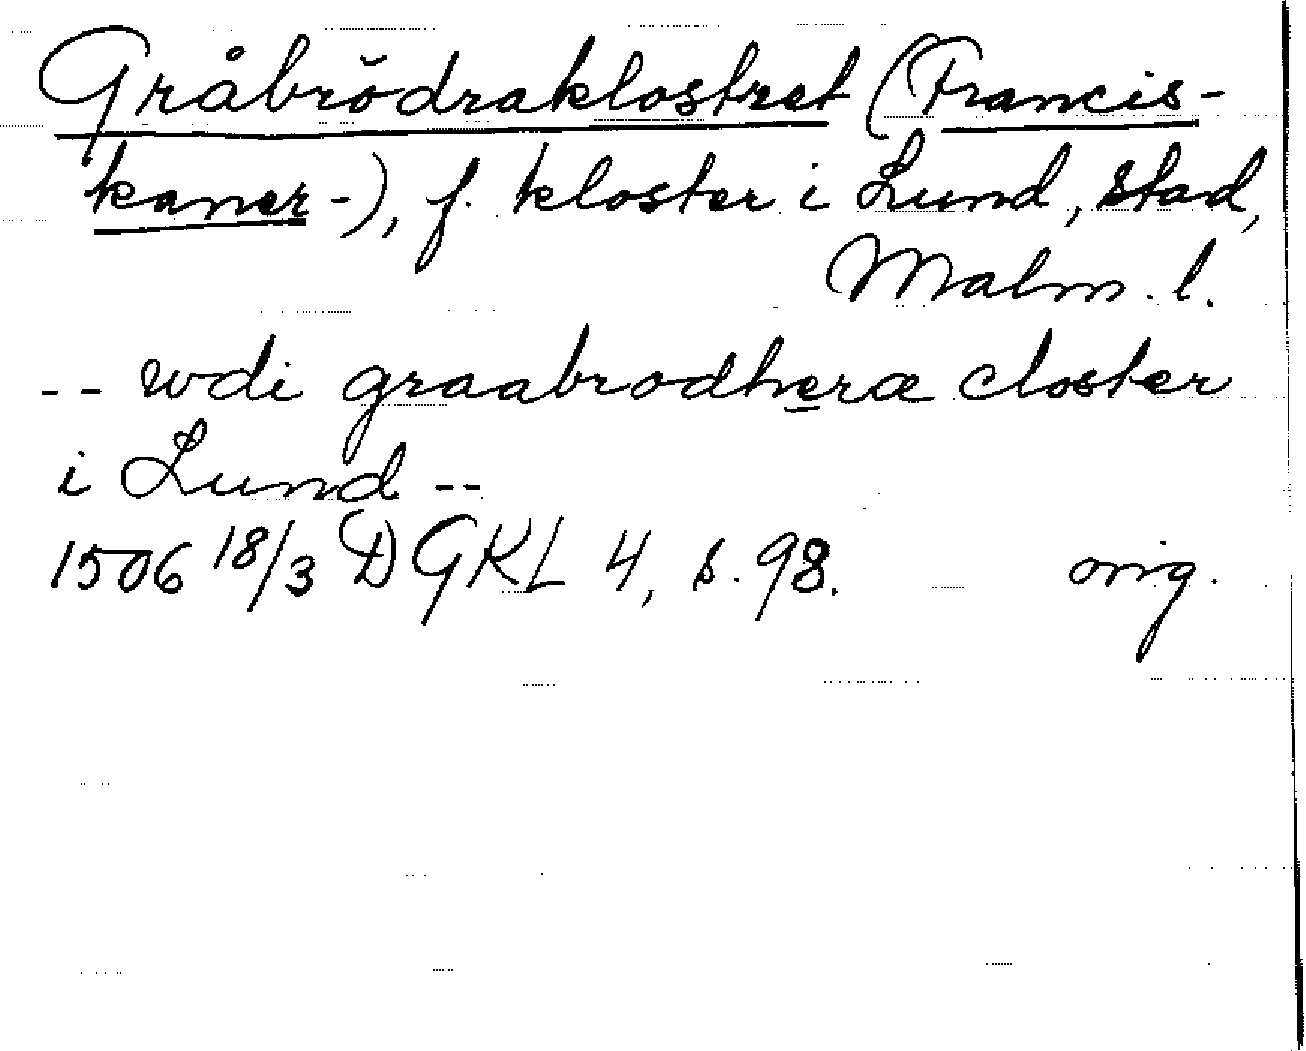 Gråbrödraklostret (Francis-
kaner-), f. kloster i Lund, stad,
Malm. l.
-- wdi graabrodheræ closter
i Lund --
1506 18/3 DGKL 4, s. 98. orig.